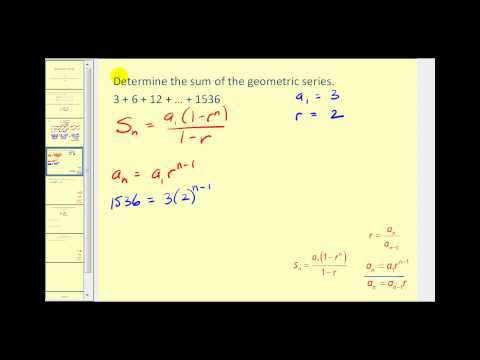 Determine the sum of the geometric series.
3 + 6 + 12 + ... + 1536
a₁ = 3
r = 2
Sₙ = a₁(1-rⁿ) / 1-r
aₙ = a₁rⁿ⁻¹
1536 = 3(2)ⁿ⁻¹
r = aₙ / aₙ₋₁
Sₙ = a₁(1-rⁿ) / 1-r
aₙ = a₁rⁿ⁻¹
aₙ = aₙ₋₁r